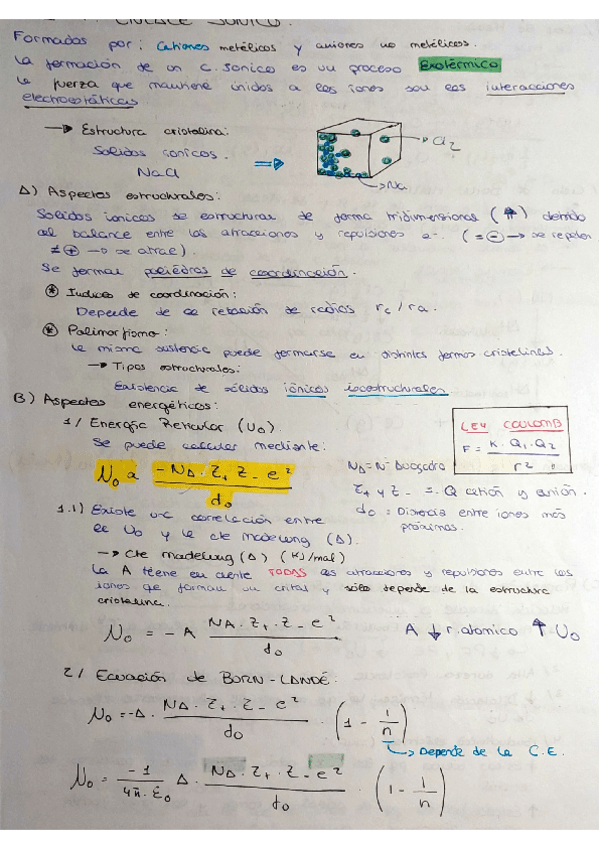 ENLACE IONICO.
Formados por: Cationes metélicos y aniones no metélicos.
La formación de un C. Ionico es un proceso Exotérmico
La fuerza que mantiene únidos a los iones son las interacciones
electroestáticas.
→ Estructura cristalina:
Solidos ionicos.
NaCl
⇒
→ Cl2
→ Na
A) Aspectos estructurales:
Solidos iónicos se estructuran de forma tridimensional (↑) debido
al balance entre las atracciones y repulsiones e-. (= ⊖ → se repelen
≠ ⊕ → se atrae).
Se forman poliédros de coordinación.
⊛ Indices de coordinación:
Depende de la relación de radios rc/ra.
⊛ Polimorfismo:
La misma sustancia puede formarse en distintas formas cristalinas.
→ Tipos estructurales:
Existencia de sólidos iónicos isoestructurales
B) Aspectos energéticos:
1/ Energía Reticular (U0).
Se puede calcular mediante:
LEY COULOMB
F = K · Q1 · Q2 / r2
U0 α -NA · Z+ Z- e2 / d0
NA = Nº Avogadro
Z+ y Z- = Q catión y anión.
d0 = Distancia entre iones más
próximos.
1.1) Existe una correlación entre
el U0 y la cte madelung (A).
→ Cte madelung (A) (KJ/mol)
La A tiene en cuenta TODAS las atracciones y repulsiones entre los
iones que forman un cristal y sólo depende de la estructura
cristalina.
U0 = - A NA · Z+ · Z- e2 / d0
A ↓ r. atomico ↑ U0
2/ Ecuación de BORN-LANDÉ.
U0 = -A · NA · Z+ · Z- e2 / d0 · (1 - 1/n)
→ Depende de la C.E.
U0 = -1 / 4π · ε0 A · NA · Z+ · Z- e2 / d0 · (1 - 1/n)